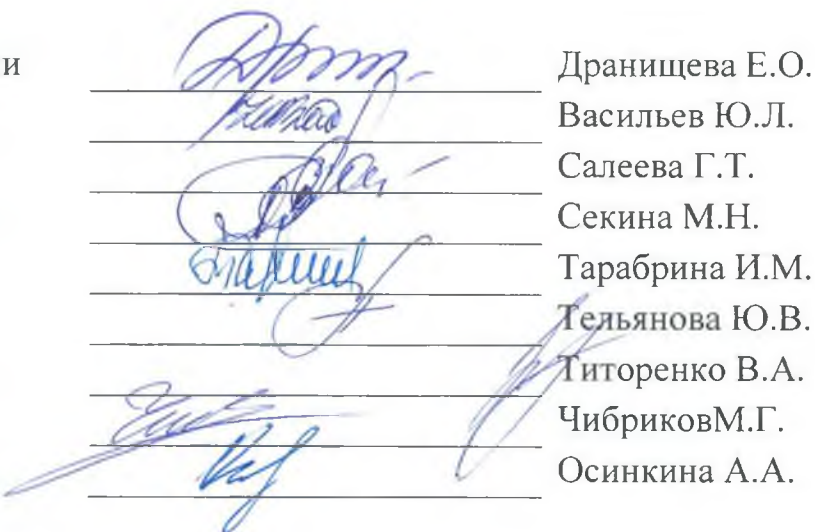 и Дранищева Е.О.
Васильев Ю.Л.
Салеева Г.Т.
Секина М.Н.
Тарабрина И.М.
Тельянова Ю.В.
Титоренко В.А.
ЧибриковМ.Г.
Осинкина А.А.